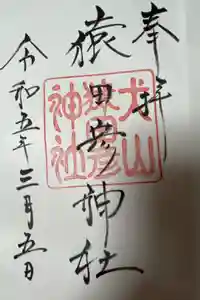 奉拝
猿田彦神社
令和五年三月五日
犬山
猿田彦
神社